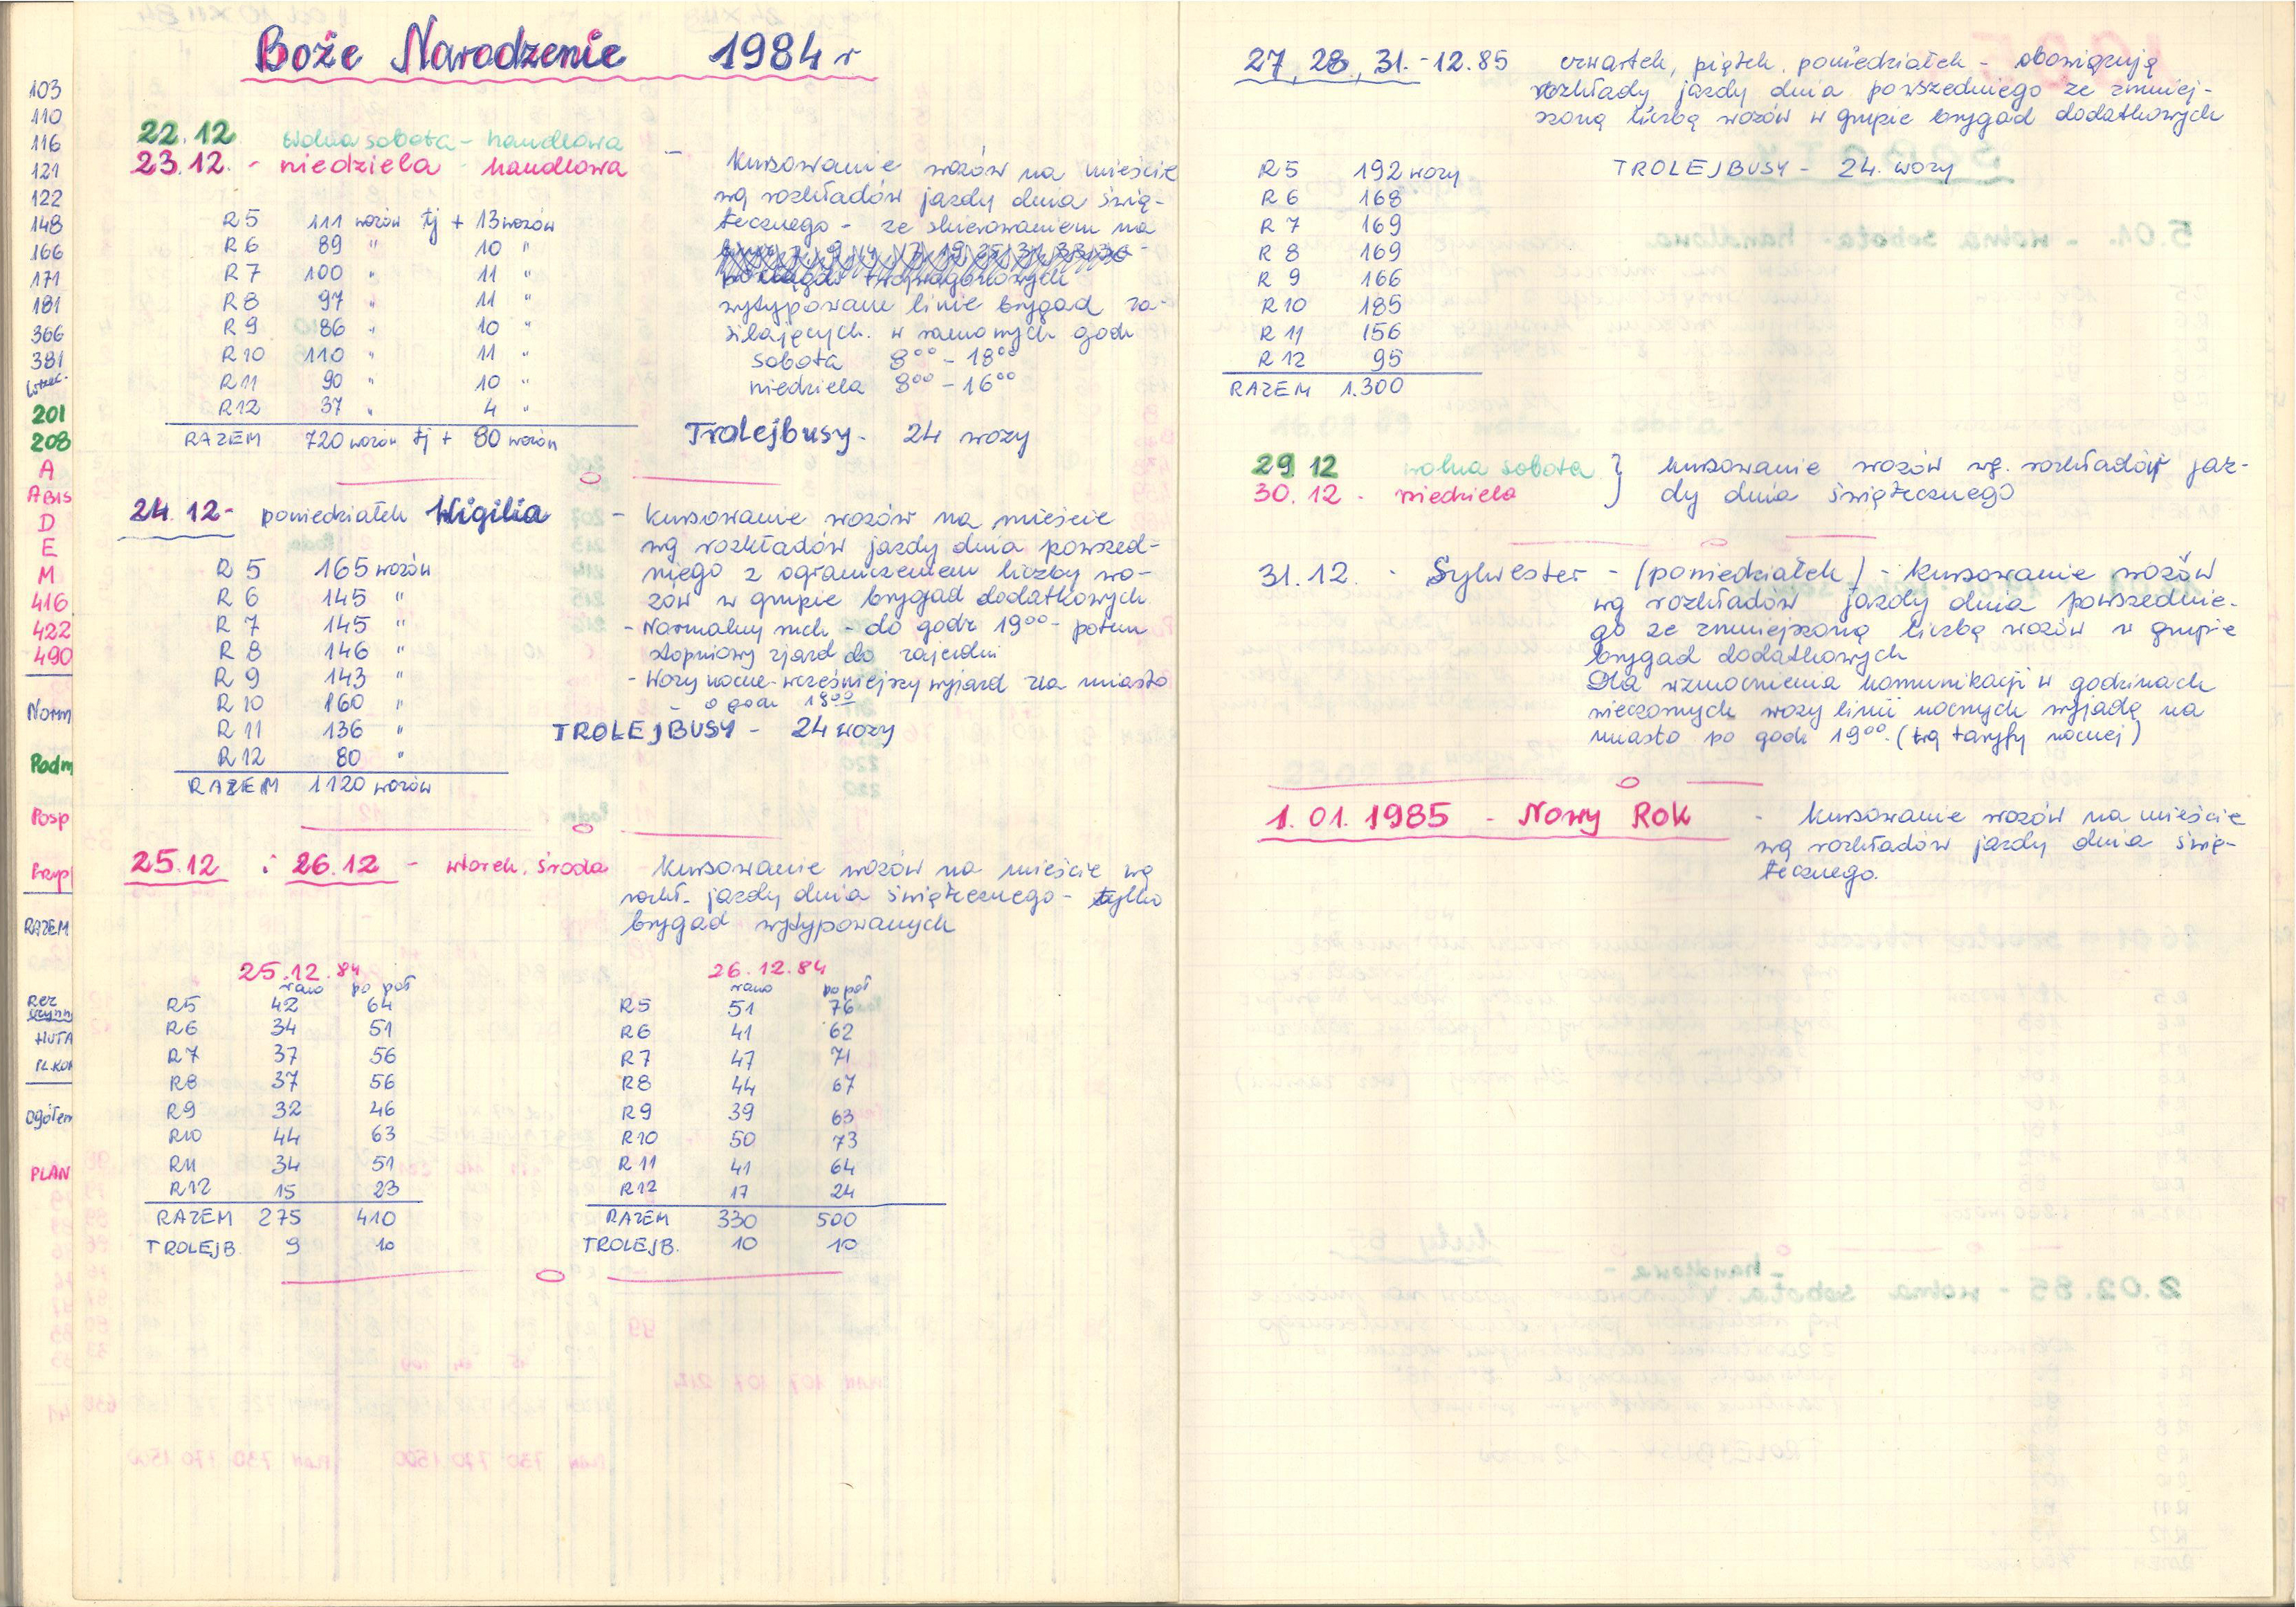 103
110
116
121
122
148
166
171
181
366
381
201
208
A
ABIS
D
E
M
416
422
490
Norm
Podm
Posp
RAZEM
Rez
HUTA
PL.KON
Ogółem
PLAN
Boże Narodzenie 1984 r
22.12 wolna sobota - handlowa
23.12. - niedziela - handlowa - kursowanie wozów na mieście
wg rozkładów jazdy dnia świą-
tecznego - ze skierowaniem na
wytypowane linie brygad za-
silających. w ramowych godz
sobota 8⁰⁰ - 18⁰⁰
niedziela 8⁰⁰ - 16⁰⁰
R5 111 wozów tj + 13 wozów
R6 89 " 10 "
R7 100 " 11 "
R8 97 " 11 "
R9 86 " 10 "
R10 110 " 11 "
R11 90 " 10 "
R12 37 " 4 "
RAZEM 720 wozów tj + 80 wozów
Trolejbusy - 24 wozy
24.12 - poniedziałek Wigilia - kursowanie wozów na mieście
wg rozkładów jazdy dnia powszed-
niego z ograniczeniem liczby wo-
zów w grupie brygad dodatkowych
- Normalny ruch - do godz 19⁰⁰ - potem
stopniowy zjazd do zajezdni
- Wozy nocne - wcześniejszy wyjazd na miasto
- o godz 19⁰⁰
R5 165 wozów
R6 145 "
R7 145 "
R8 146 "
R9 143 "
R10 160 "
R11 136 "
R12 80 "
RAZEM 1120 wozów
TROLEJBUSY - 24 wozy
25.12 i 26.12 - wtorek, środa kursowanie wozów na mieście wg
rozkł. jazdy dnia świątecznego - tylko
brygad wytypowanych
25.12.84
rano po poł
R5 42 64
R6 34 51
R7 37 56
R8 37 56
R9 32 46
R10 44 63
R11 34 51
R12 15 23
RAZEM 275 410
TROLEJB. 9 10
26.12.84
rano po poł
R5 51 76
R6 41 62
R7 47 71
R8 44 67
R9 39 63
R10 50 73
R11 41 64
R12 17 24
RAZEM 330 500
TROLEJB. 10 10
27, 28, 31. - 12.85 czwartek, piątek, poniedziałek - obowiązują
rozkłady jazdy dnia powszedniego ze zmniej-
szoną liczbą wozów w grupie brygad dodatkowych
R5 192 wozy TROLEJBUSY - 24. wozy
R6 168
R7 169
R8 169
R9 166
R10 185
R11 156
R12 95
RAZEM 1.300
29 12 wolna sobota } kursowanie wozów wg. rozkładów jaz-
30.12. niedziela dy dnia świątecznego
31.12. - Sylwester - (poniedziałek) - kursowanie wozów
wg rozkładów jazdy dnia powszednie-
go ze zmniejszoną liczbą wozów w grupie
brygad dodatkowych
Dla wzmocnienia komunikacji w godzinach
wieczornych wozy linii nocnych wyjadą na
miasto po godz 19⁰⁰. (wg taryfy nocnej)
1.01.1985 - Nowy Rok - kursowanie wozów na mieście
wg rozkładów jazdy dnia świą-
tecznego.